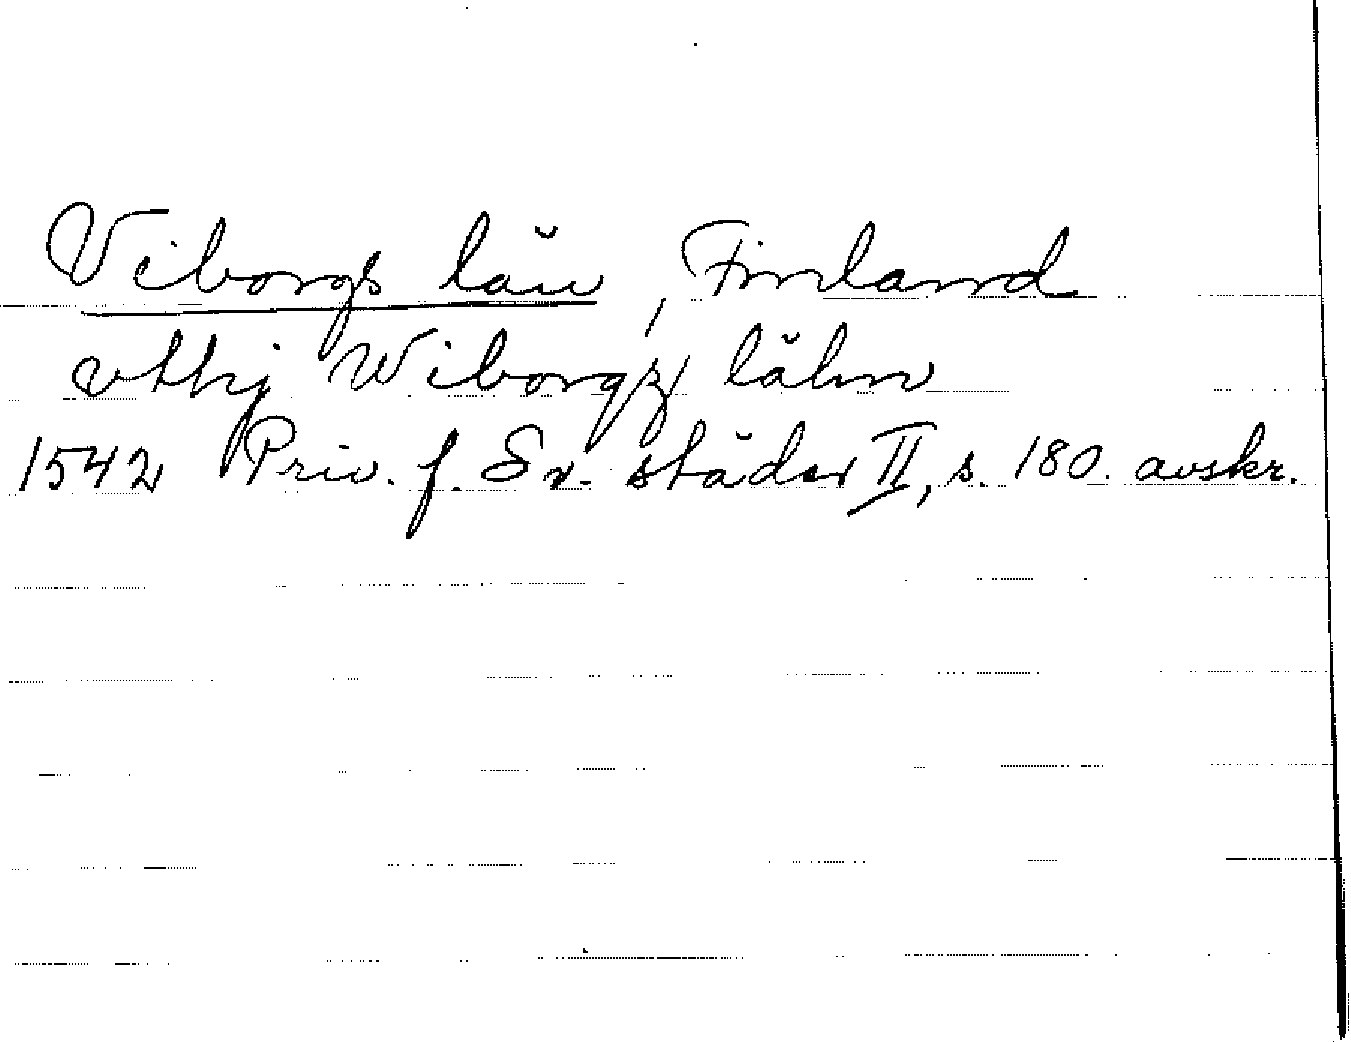 Viborgs län, Finland
vthj Wiborgz län
1542 Priv. f. Sv. städer II, s. 180. avskr.